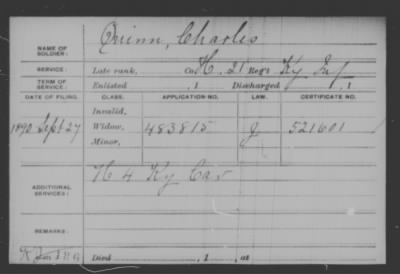 NAME OF SOLDIER: Quinn, Charles
SERVICE: Late rank, Co. H, 21 Reg't Ky Inf
TERM OF SERVICE: Enlisted , 1 Discharged , 1
DATE OF FILING. CLASS. APPLICATION NO. LAW. CERTIFICATE NO.
Invalid,
1890 Sept 27 Widow, 483815 J 521601
Minor,
ADDITIONAL SERVICES: H 4 Ky Cav
REMARKS:
Died , 1 , at